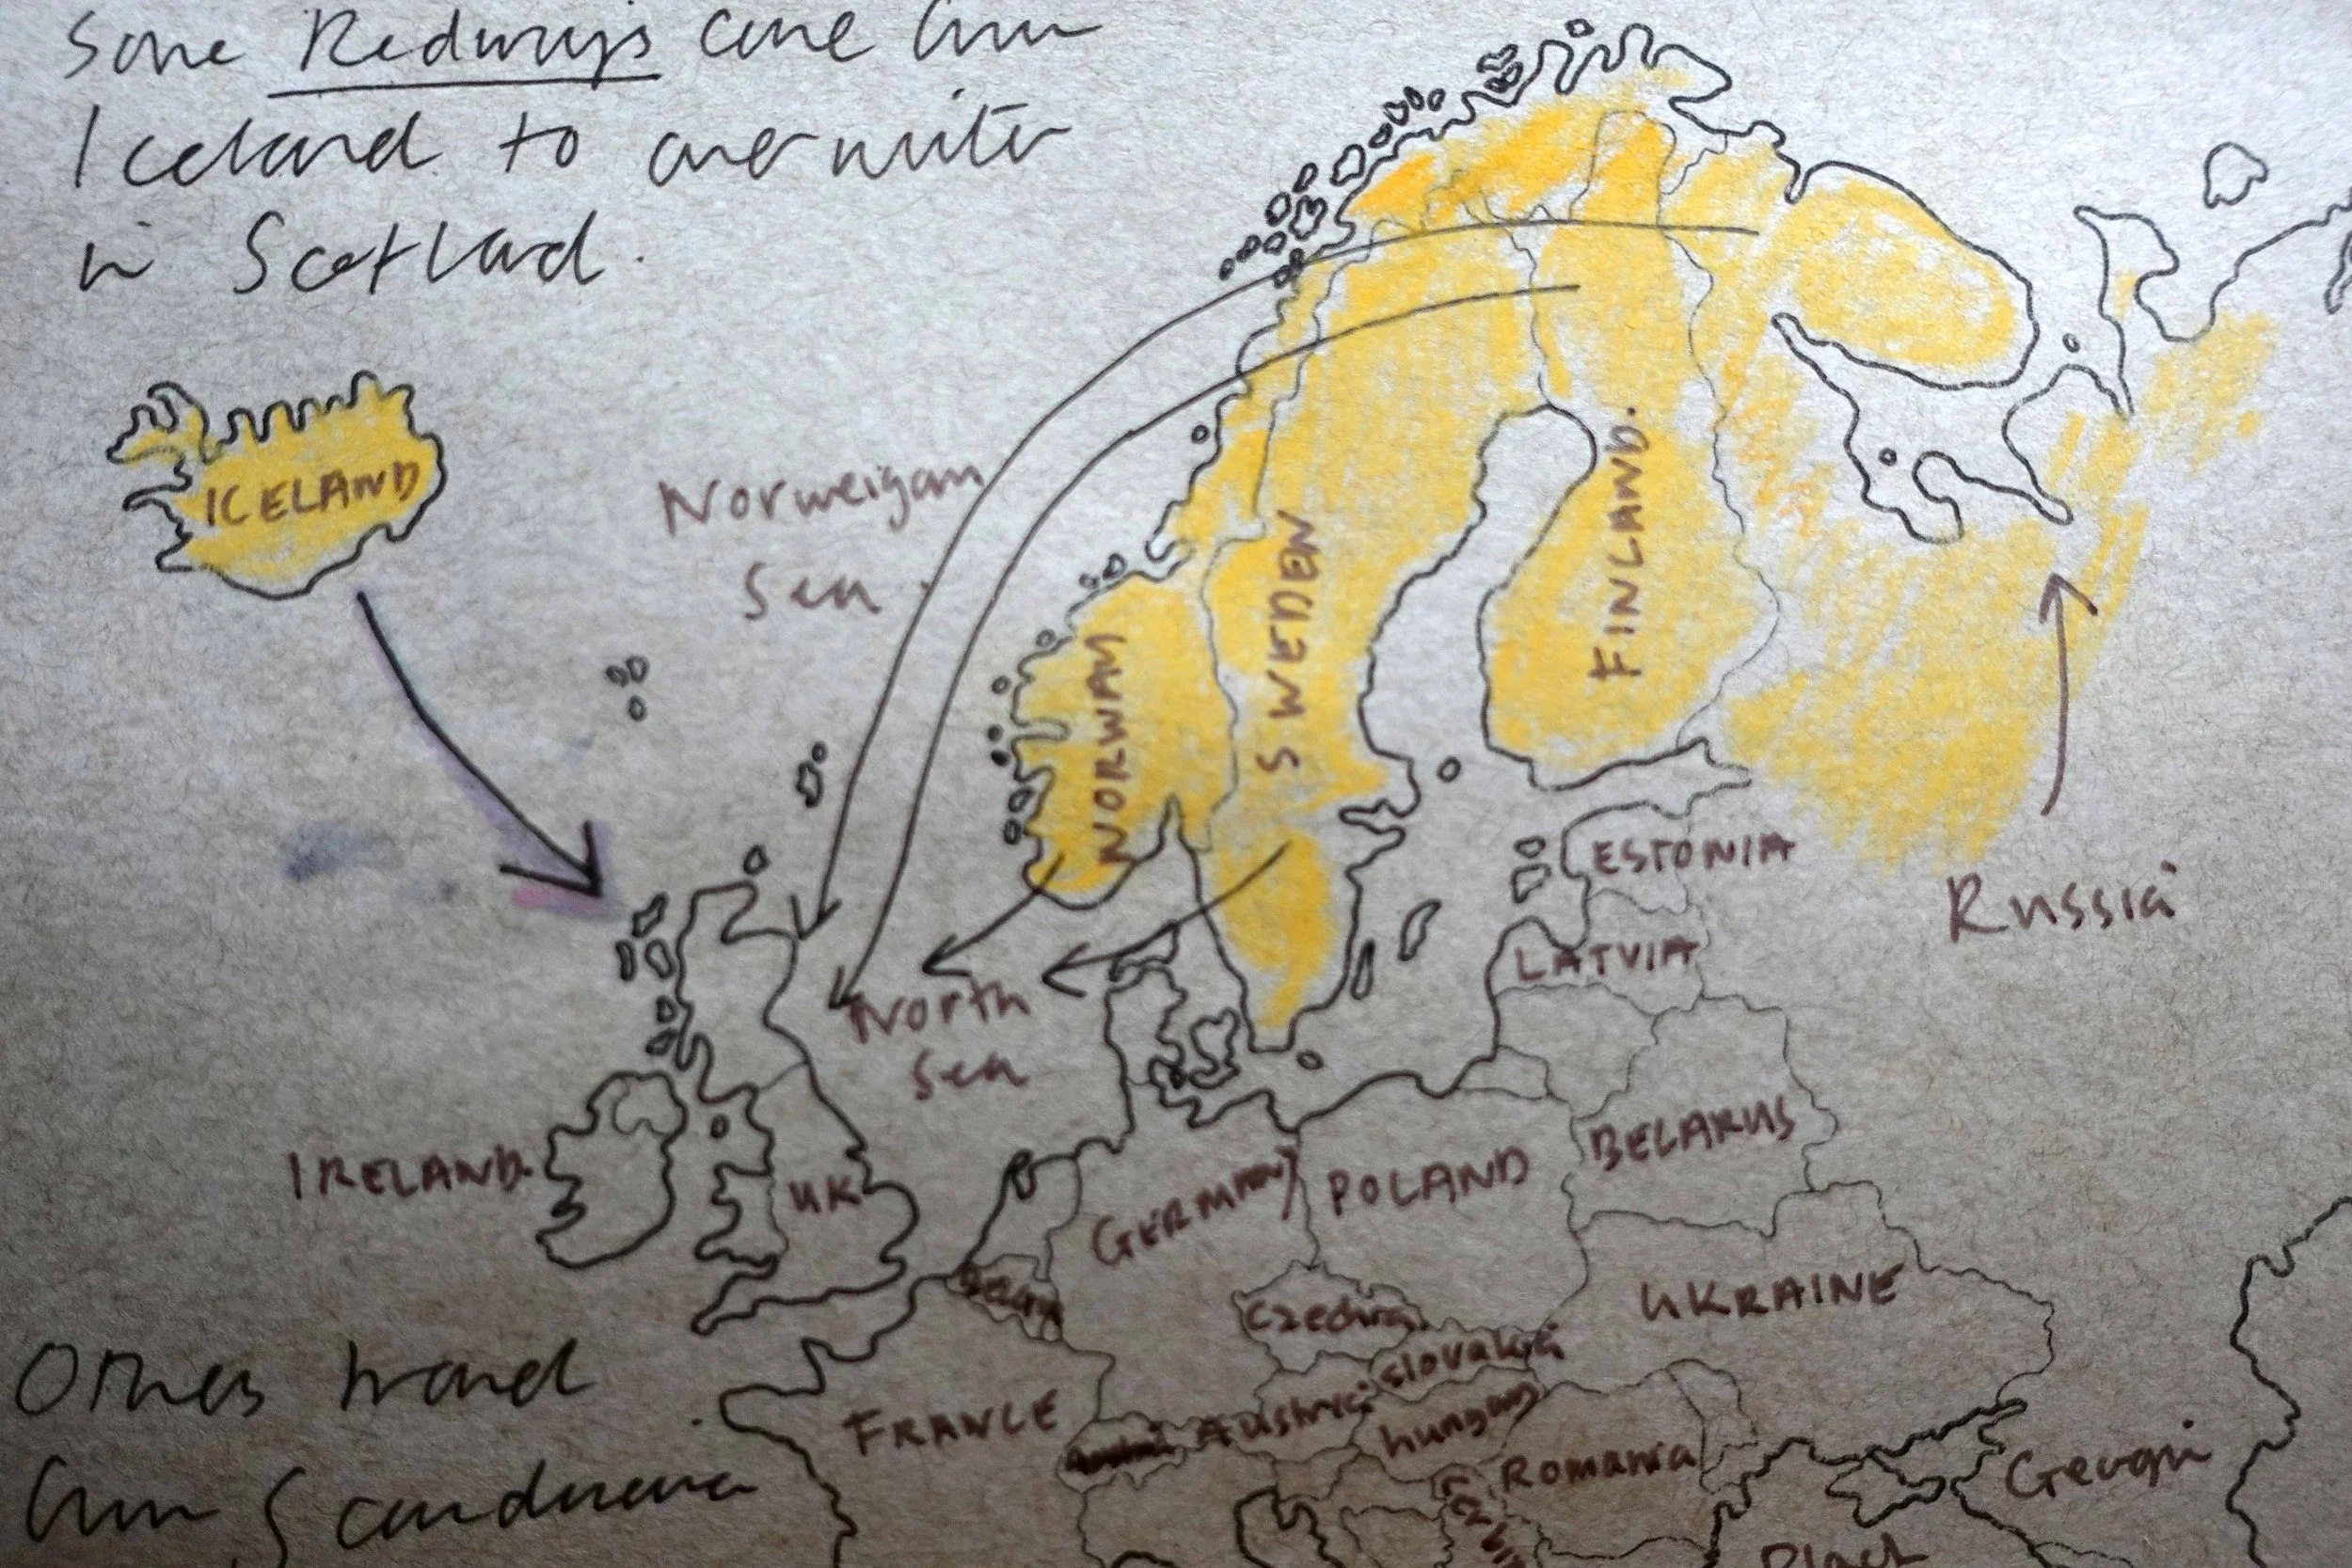 Some Redwings come from
Iceland to overwinter
in Scotland.
ICELAND
Norweigan
Sea
NORWAY
SWEDEN
FINLAND.
Russia
ESTONIA
LATVIA
North
Sea
IRELAND
UK
GERMANY
POLAND
BELARUS
UKRAINE
Czechia
Slovakia
Others travel
from Scandinavia
FRANCE
Austria
hungary
Romania